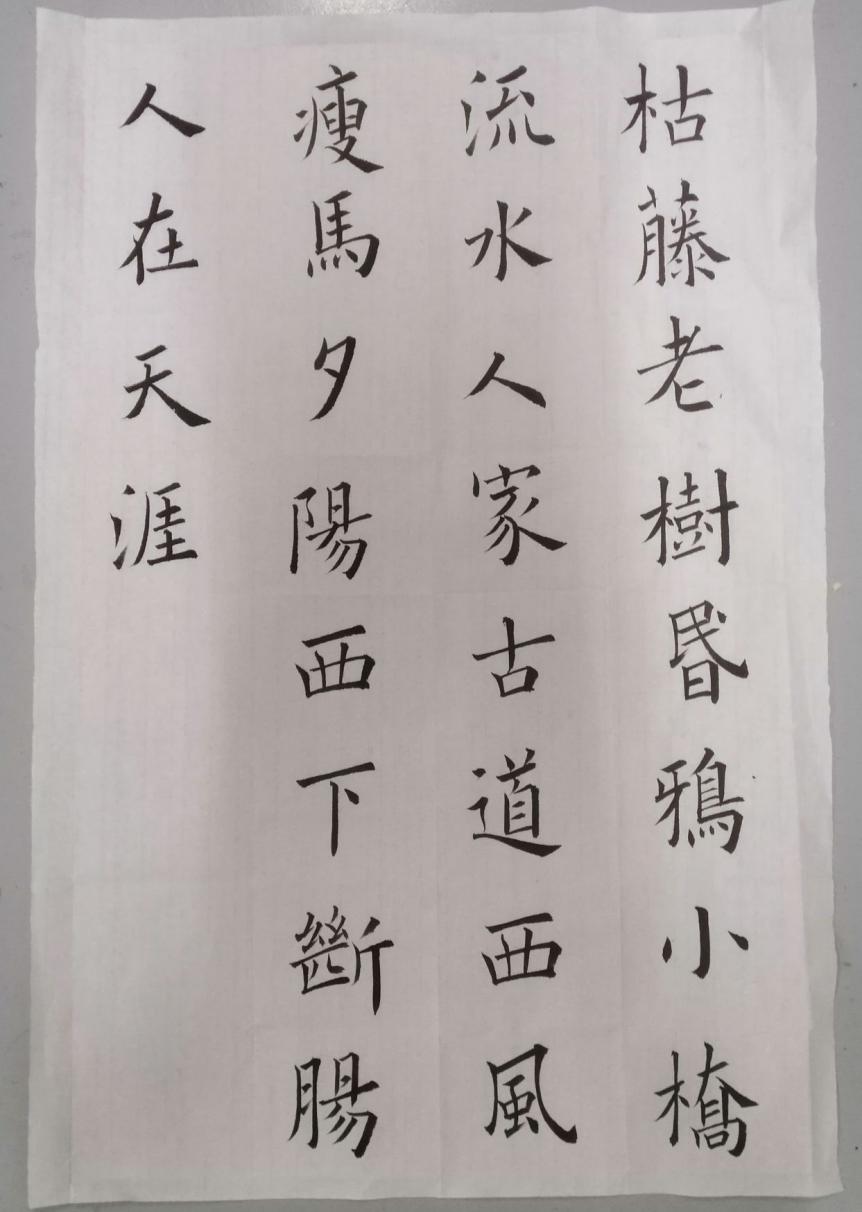 枯藤老樹昬鴉小橋
流水人家古道西風
瘦馬夕陽西下斷腸
人在天涯